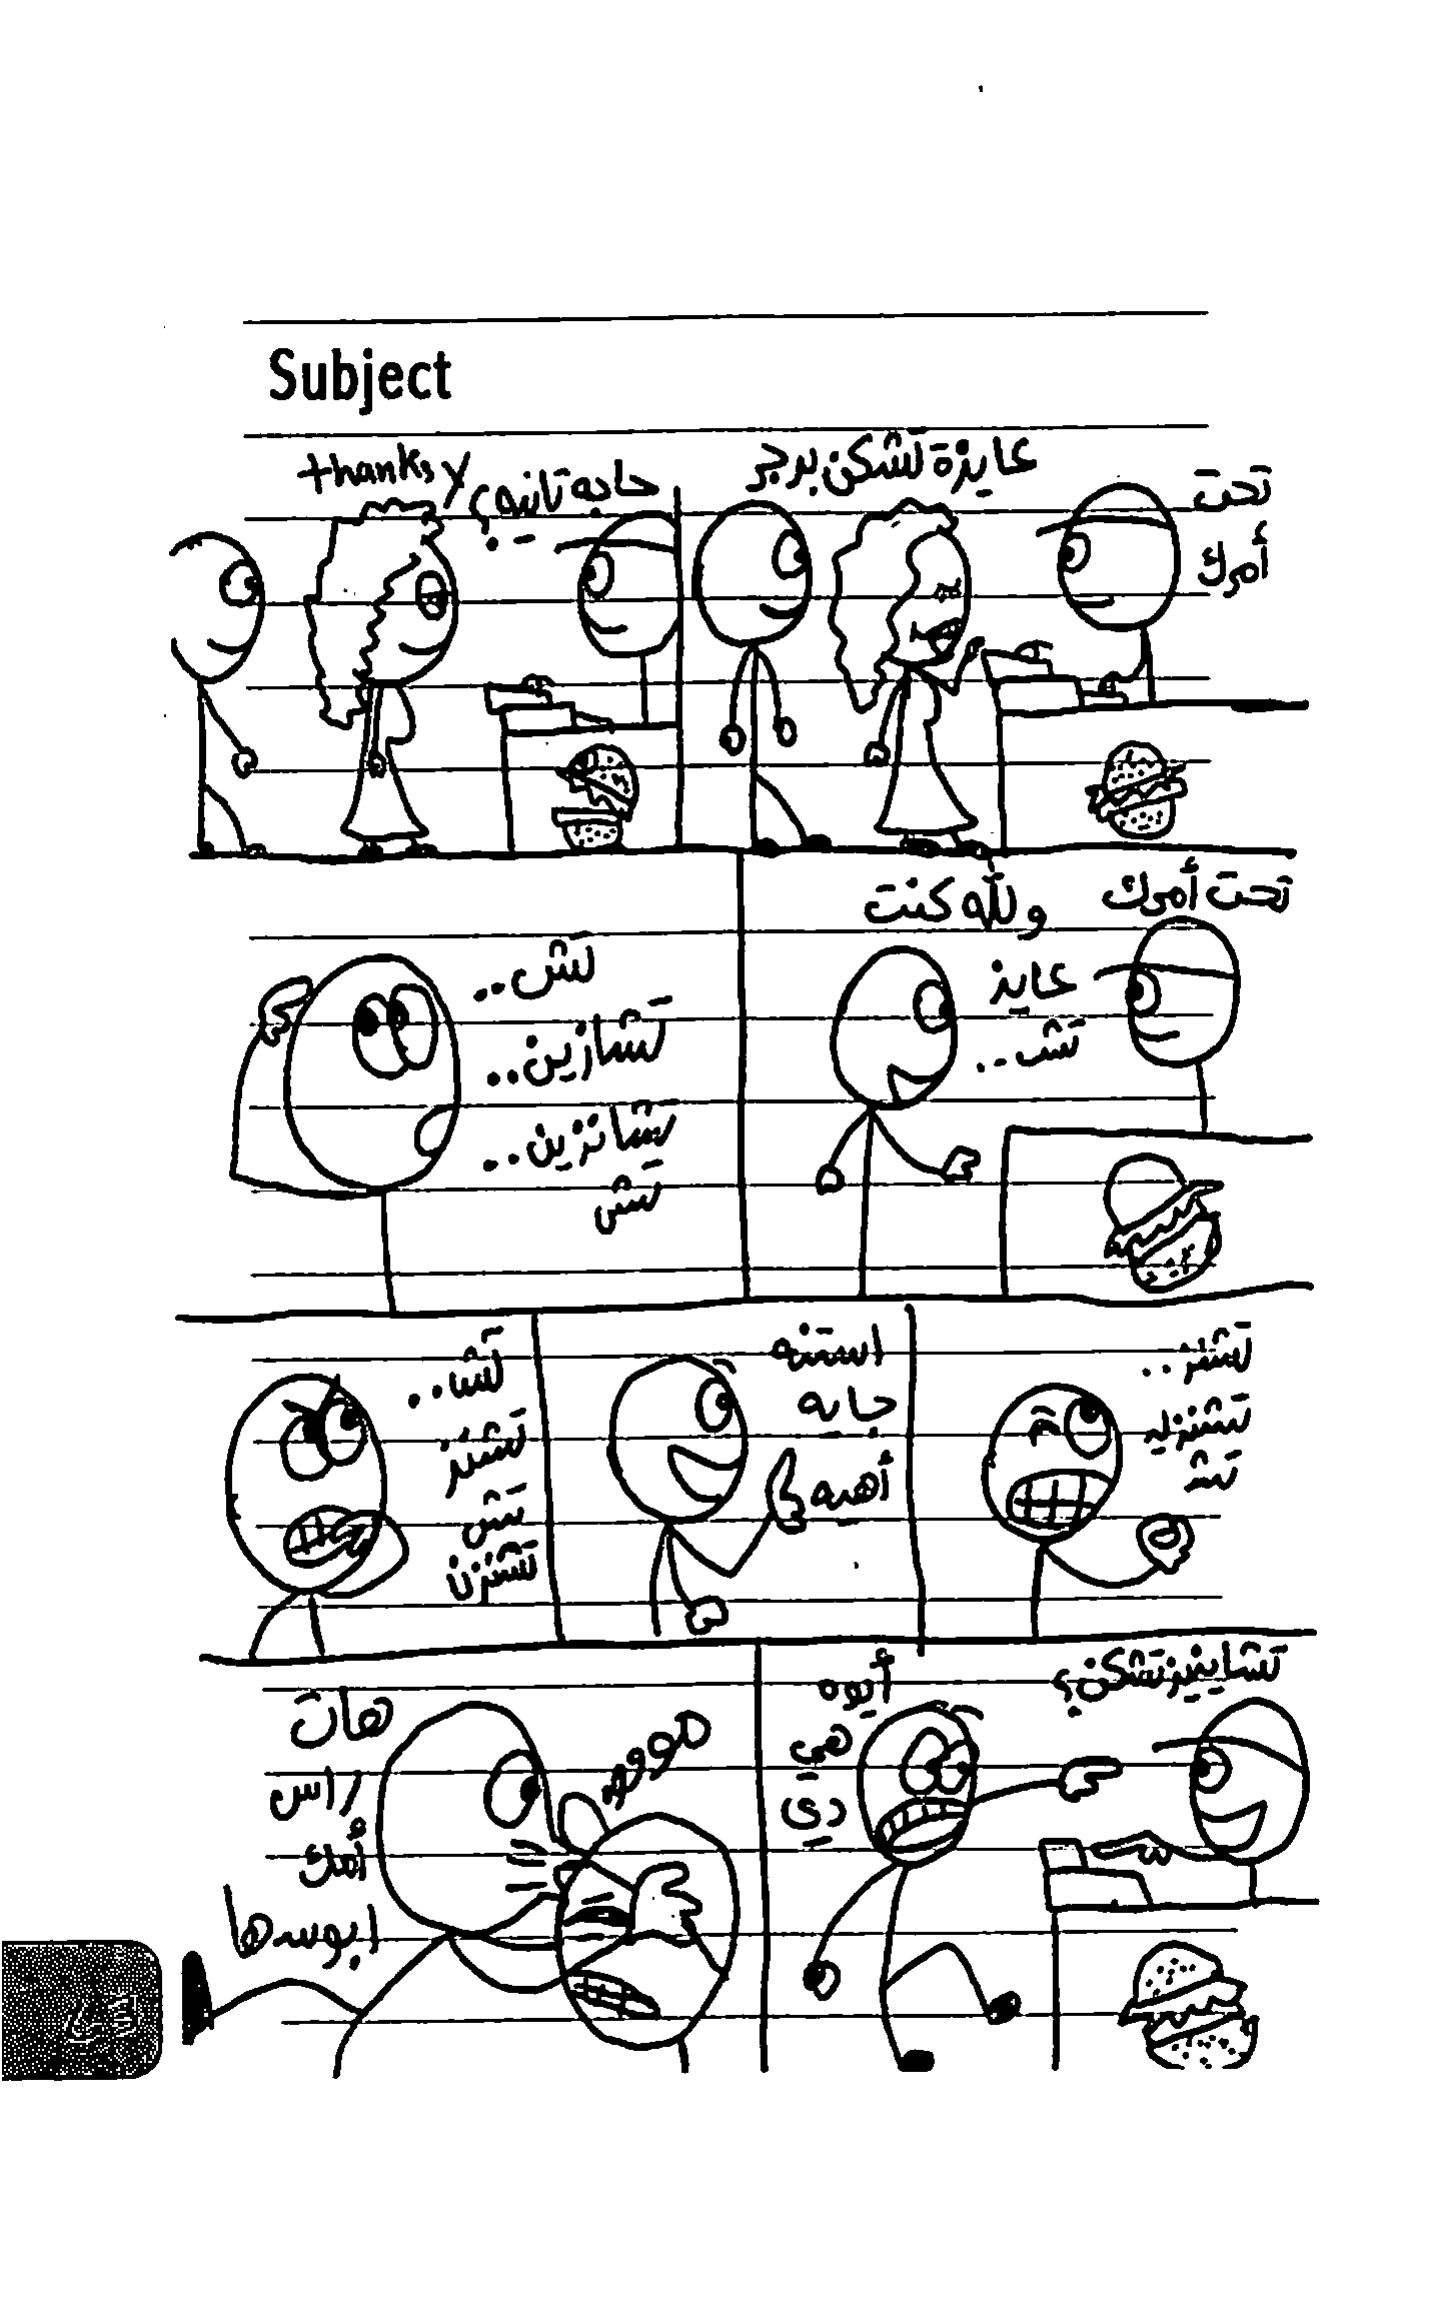 Subject
تحت
أمرك
عايزة تشكن برجر
حاجه تانيه؟
thanksy
تحت أمرك
ولله كنت
عايز
تشـ..
تش..
تشازين..
تشانزين..
تش
تشنز..
تشنزيه
تش
استنه
جايه
أهيه
تشا..
تشنز
تش
تشنزن
تشاينيزتشكن؟
أيوه
هي
دي
مووووه
هات
راس
أمك
ابوسها
٤٦